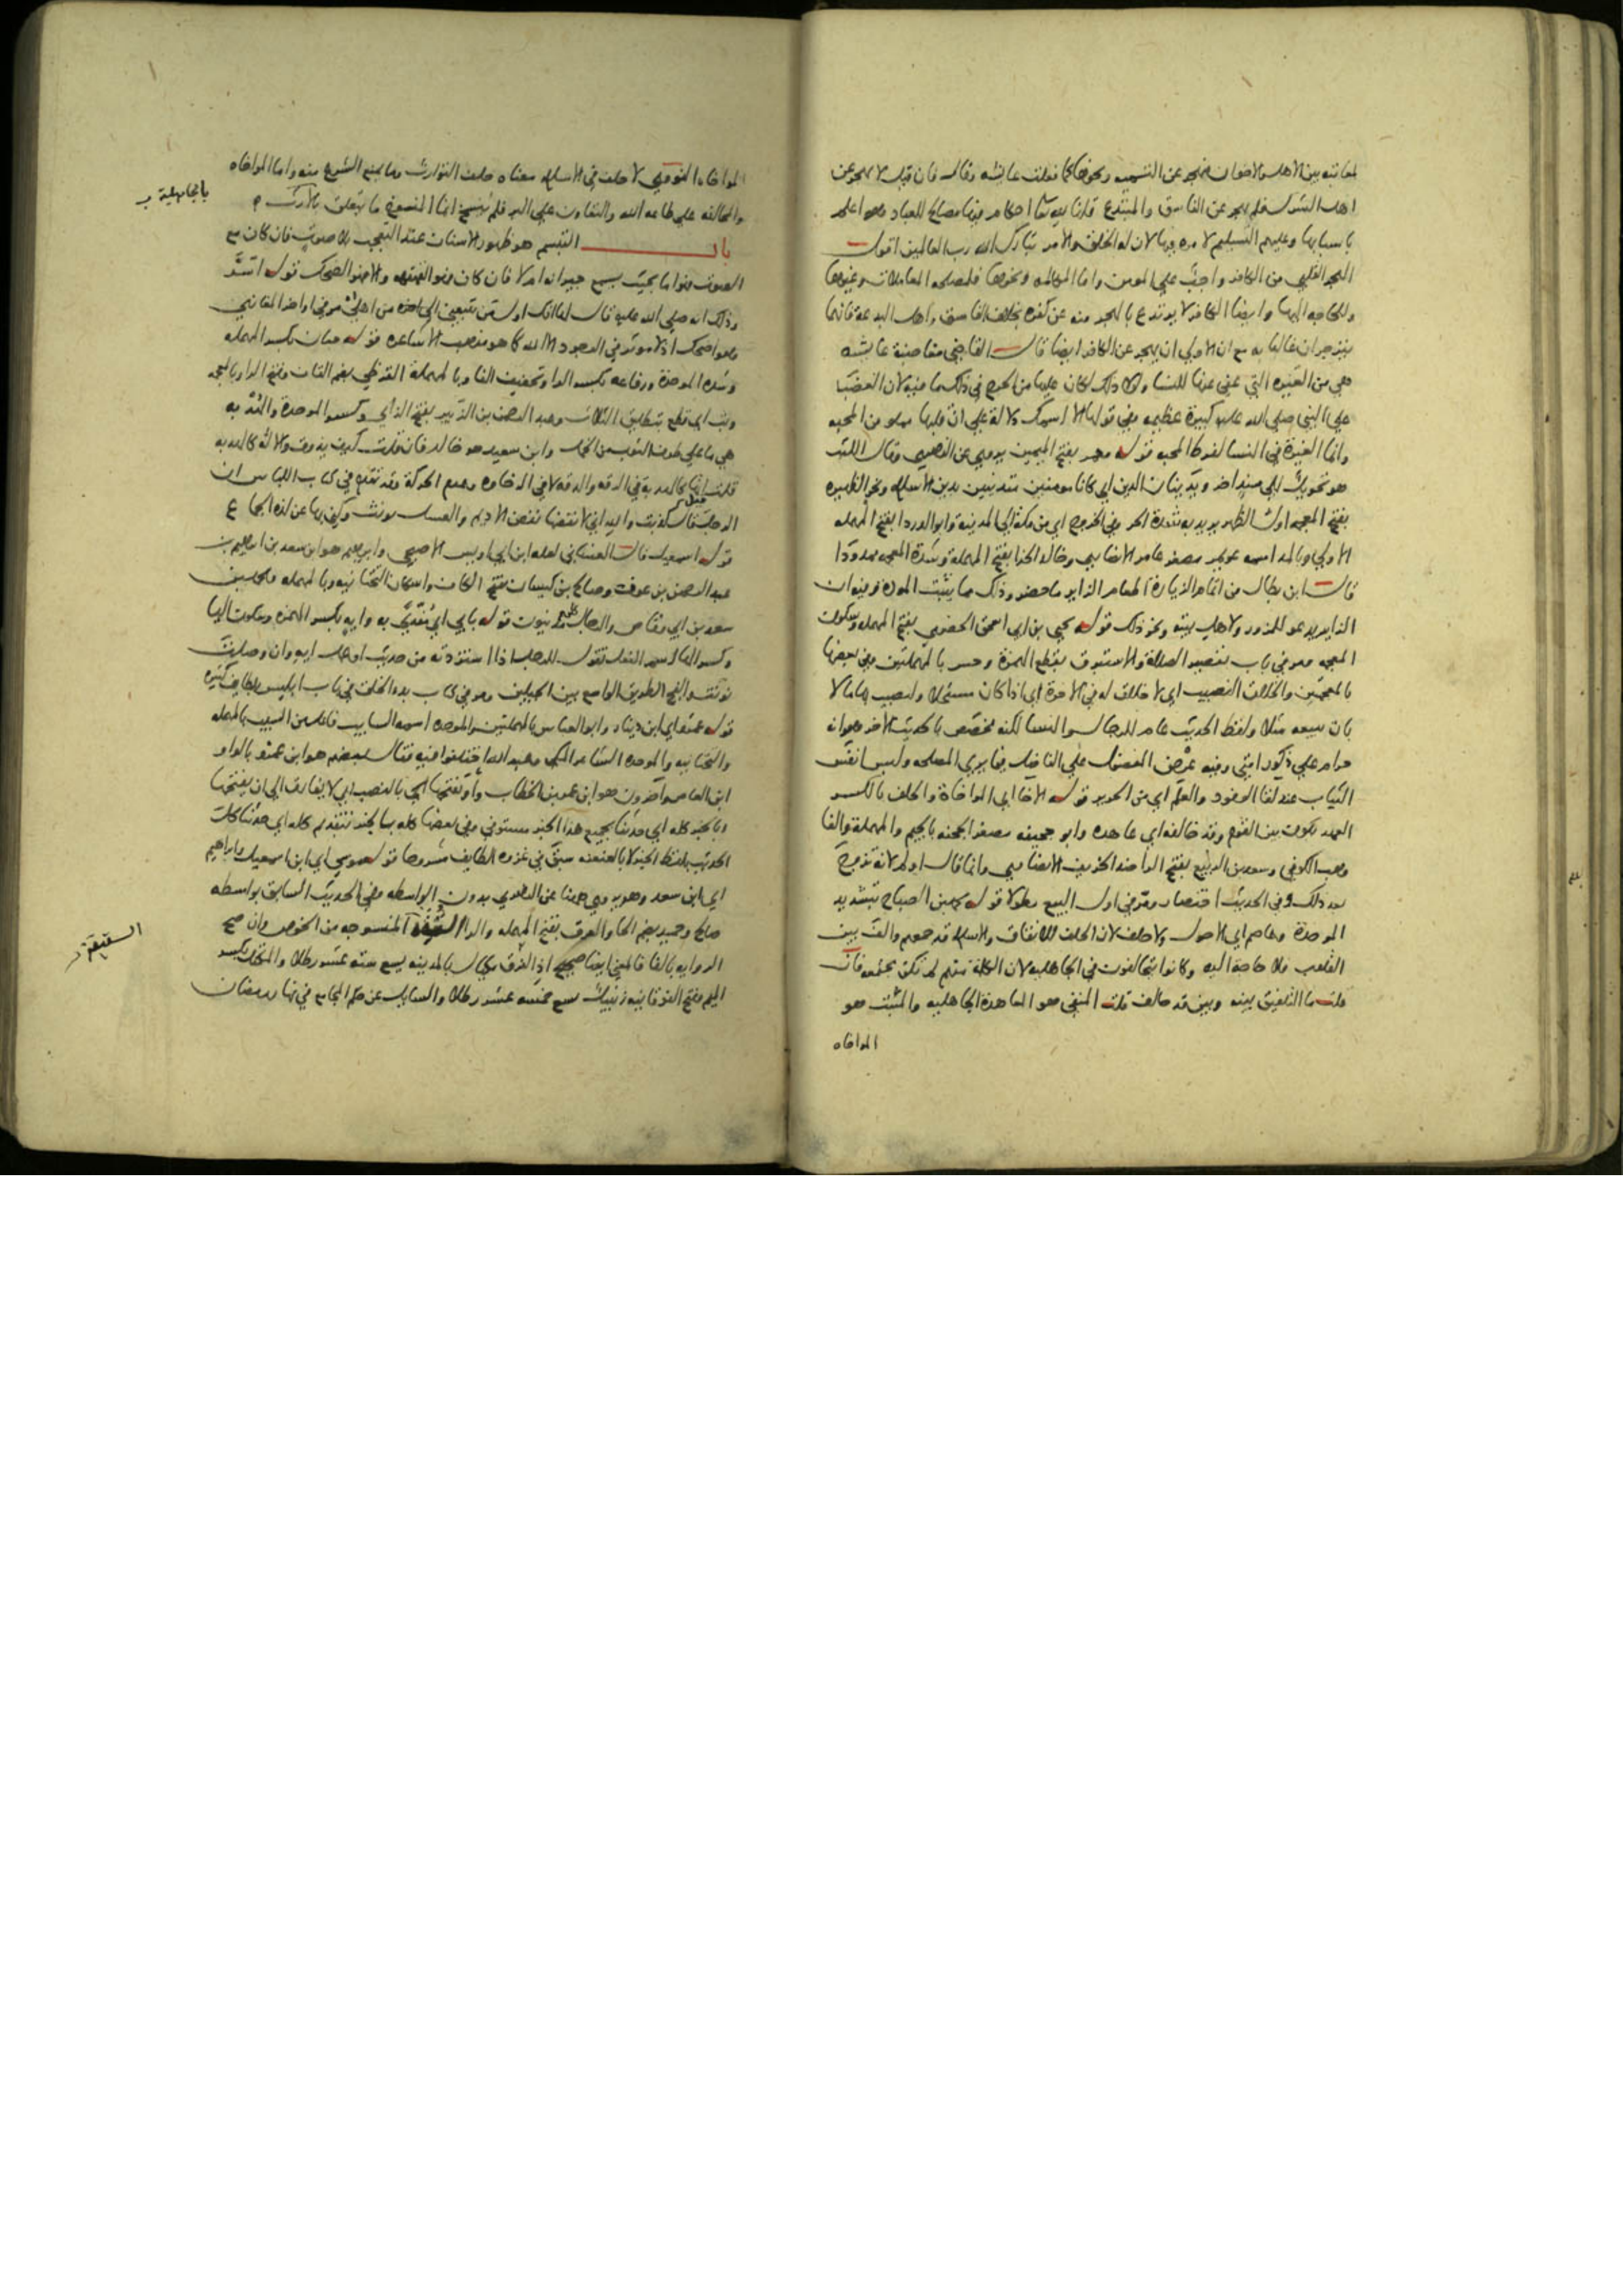 لمعاتبه بين الاهل والاخوان فهجر عن التسميه ونحوها كما فعلت عايشه وقال فان قيل لا يهجر عن
اهل الشرك فلم يهجر عن الفاسق والمبتدع قلنا لله تعا احكام فيها مصالح للعباد وهو اعلم
باسبابها وعليهم التسليم لامره فيها لان له الخلق والامر تبارك الله رب العالمين اقول
الهجر القلبي من الكافر واجب علي المومن واما المكالمه ونحوها فلمصلحه المعاملات وغيرها
وللحاجه اليها وايضا الكافر لا يرتدع بالهجر منه عن كفره بخلاف الفاسق واهل البدعه فانهما
ينزجران غالبا به مع ان الاولي ان يهجر عن الكافر ايضا قال القاضي مغاضبة عايشه
هي من الغيره التي عفي عنها للنسا ولولا ذلك لكان عليها من الحرج في ذلك ما فيه لان الغضب
علي النبي صلي الله عليه كبيرة عظيمه وفي قولها الا اسمك دلالة علي ان قلبها مملو من المحبه
وانما الغيرة في النسا لفرط المحبه قوله معمر بفتح الميمين يروي عن الزهري وقال الليث
هو تحويل الي سند اخر ويدينان الدين اي كانا مومنين متدينين بدين الاسلام ونحر الظهيره
بفتح المعجمه اول الظهر يريد به شدة الحر وفي الخروج اي من مكة الي المدينة وابو الدردا بفتح المهمله
الاولي وبالمد اسمه عويمر مصغر عامر الانصاري وخالد الحذا بفتح المهملة وشدة المعجمه ممدودا
قال ابن بطال من اتمام الزيارة اطعام الزاير ما حضر وذلك مما يثبت المودة وفيه ان
الزاير يدعو للمزور ولاهل بيته ونحو ذلك قوله يحيى بن ابي اسحق الحضرمي بفتح المهمله وسكون
المعجمه ومر في باب تقصير الصلاة والاستبرق بقطع الهمزة وحسن بالمهملتين وفي بعضها
بالمعجمتين والخلاق النصيب اي لا خلاق له في الاخرة اي اذا كان مستحلا ولتصيب بها مالا
بان تبيعه مثلا ولفظ الحديث عام للرجال والنسا لكنه مخصص بالحديث الاخر وهو انه
حرام علي ذكور امتي وفيه عرض المفضول علي الفاضل فيما يري المصلحه ولبس انفس
الثياب عند لقا الوفود والعلم اي من الحرير قوله الاخا اي المواخاة والحلف بالكسر
العهد يكون بين القوم وقد حالفه اي عاهده وابو جحيفه مصغر الجحفه بالجيم والمهملة والفا
وهب الكوفي وسعد بن الربيع بفتح الرا ضد الخريف الانصاري وانما قال اولم لانه تزوج
بعد ذلك وفي الحديث اختصار ومر في اول البيع مطولا قوله محمد بن الصباح بتشديد
الموحدة وعاصم اي الاحول ولا حلف لان الحلف للاتفاق والاسلام قد جمعهم والف بين
القلوب فلا حاجة اليه وكانوا يتحالفون في الجاهليه لان الكلمة منهم لم تكن مجتمعه فان
قلت ما التلفيق بينه وبين قد حالف قلت المنفي هو المعاهدة الجاهليه والمثبت هو
المواخاه
المواخاه النووي لا حلف في الاسلام معناه حلف التوارث وما يمنع الشرع منه واما المواخاه
والمحالفه علي طاعه الله والتعاون علي البر فلم ينسخ انما المنسوخ ما يتعلق بالارث
بالجاهلية
باب التبسم هو ظهور الاسنان عند التعجب بلا صوت فان كان مع
الصوت فهو اما بحيث يسمع جيرانه ام لا فان كان فهو القهقهه والا فهو الضحك قوله اسر
وذلك انه صلي الله عليه قال لها انك اول من يتبعني الي اخره من اهلي مر في اواخر المغازي
وهو اضحك اذ لا موثر في الوجود الا الله كما هو مذهب الاشاعره قوله حبان بكسر المهمله
وشده الموحدة ورفاعه بكسر الرا وتخفيف الفا وبالمهملة القرظي بضم القاف وفتح الرا وبالمعجمه
وبت اي قطع بتطليق الثلاث وعبد الرحمن بن الزبير بفتح الزاي وكسر الموحدة والهدبه
هي ما علي طرف الثوب من الخمل وابن سعيد هو خالد فان قلت كيف يذوق والالة كالهدبه
قلت انها كالهدبه في الدقه والرقه لا في الرخاوه وعدم الحركة وقد تقدم في كتاب اللباس ان
الرجل قال كذبت والله اني لانفضها نفض الاديم والعسل يونث وكني بها عن لذه الجماع
قوله اسمعيل قال الغساني لعله ابن ابي اويس الاصبحي وابرهيم هو ابن سعد بن ابراهيم بن
عبد الرحمن بن عوف وصالح بن كيسان بفتح الكاف واسكان التحتانيه وبالمهمله ومحمد بن
سعد بن ابي وقاص والرجال كلهم مدنيون قوله بابي اي مفدي به وايه بكسر الهمزه وسكون اليا
وكسر الها اسم الفعل تقول للرجل اذا استزدته من حديث او عمل ايه وان وصلت
نونت والفج الطريق الواسع بين الجبلين ومر في كتاب بدء الخلق في باب ابليس بلطايف كثيره
قوله عمرو اي ابن دينار وابو العباس بالمهملتين والموحده اسمه السايب فاعل من السيب بالمهمله
والتحتانيه والموحده الشاعر المكي وعبد الله اختلفوا فيه فقال بعضهم هو ابن عمرو بالواو
ابن العاص واخرون هو ابن عمر بن الخطاب واو نفتحها اي بالنصب اي لا نفارق الي ان نفتحها
وبالخبر كله اي حدثنا بجميع هذا الخبر مستوفي وفي بعضها كله بالخبر بتقديم كله اي حدثنا كل
الحديث بلفظ الخبر لا بالعنعنه سبق في غزوه الطايف مشروحا قوله موسي اي ابن اسمعيل وابراهيم
اي ابن سعد وهو يروي ههنا عن الزهري بدون الواسطه وفي الحديث السابق بواسطه
صالح وحميد بضم الحا والعرق بفتح المهمله والرا السفيفة المنسوجه من الخوص وان صح
الروايه بالفا فالمعني ايضا صحيح اذ الفرق مكيال بالمدينه يسع سته عشر رطلا والمكتل بكسر
الميم وفتح الفوقانيه زنبيل يسع خمسه عشر رطلا والسايل عن حكم المجامع في نهار رمضان
السفيفة